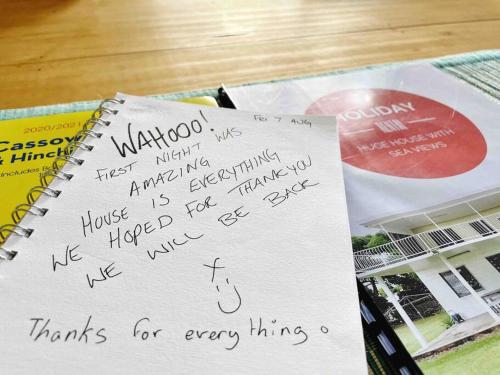 2020/2021
Cassow
& Hinchi
WAHOOO!
Fri 7 AUG
FIRST NIGHT WAS
AMAZING
HOUSE IS EVERYTHING
WE HOPED FOR THANKYOU
WE WILL BE BACK
x
Thanks for everything o
HOLIDAY
HUGE HOUSE WITH
SEA VIEWS